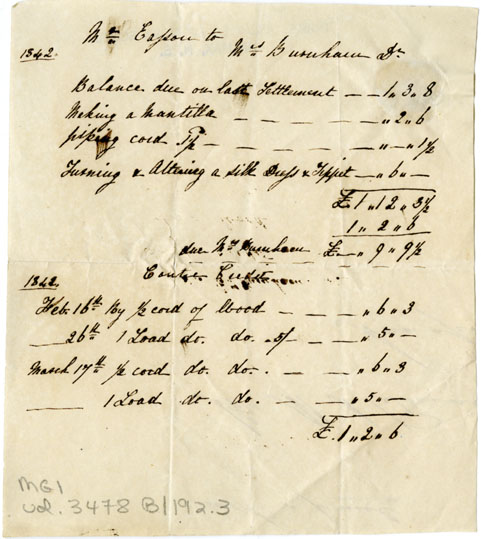 Mr Easson to
1842. Mrs Burnham Dr
Balance due on last Settlement — — 1 „ 3 „ 8
Making a Mantilla — — — — — „ 2 „ 6
piping cord — — — — — „ — „ 1 ½
Turning & Altering a silk Dress & Tippet — „ 6 „ —
£. 1 „ 12 „ 3½
1 „ 2 „ 6
due Mrs Burnham £— „ 9 „ 9½
Contra Credit
1842.
Feb. 16th By ½ cord of Wood — — — „ 6 „ 3
— 26th 1 Load do. do. 5/ — — „ 5 „ —
March 17th ½ cord do. do. — — — „ 6 „ 3
— 1 Load do. do. — — — „ 5 „ —
£. 1 „ 2 „ 6
MG1
vol. 3478 B/192.3